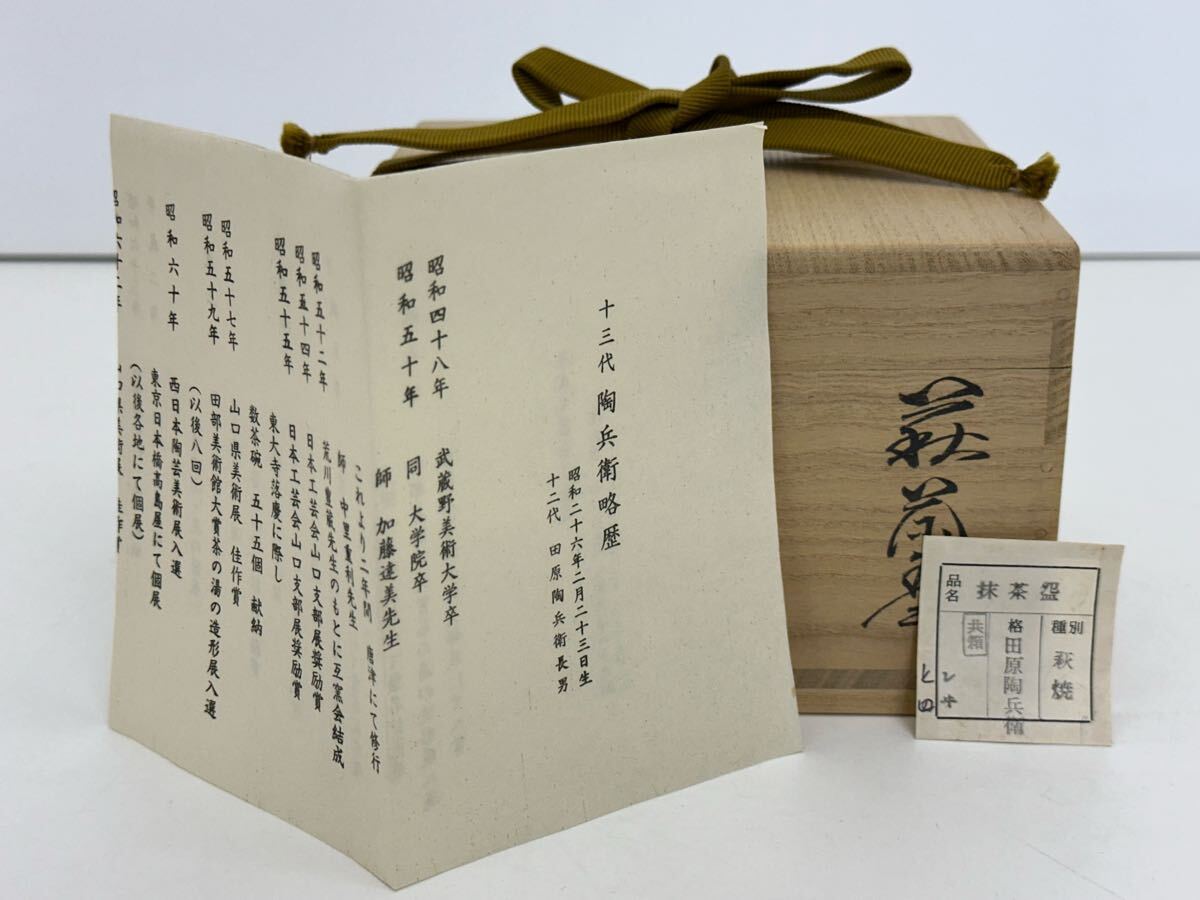 十三代 陶兵衛略歴
昭和二十六年二月二十三日生
十二代 田原陶兵衛長男
昭和四十八年 武蔵野美術大学卒
昭和五十年 同 大学院卒
師 加藤達美先生
これより二年間 唐津にて修行
師 中里重利先生
昭和五十二年 荒川豊蔵先生のもとに互窯会結成
昭和五十四年 日本工芸会山口支部展奨励賞
昭和五十五年 日本工芸会山口支部展奨励賞
東大寺落慶に際し
数茶碗 五十五個 献納
昭和五十七年 山口県美術展 佳作賞
昭和五十九年 田部美術館大賞茶の湯の造形展入選
(以後八回)
昭和六十年 西日本陶芸美術展入選
東京日本橋高島屋にて個展
(以後各地にて個展)
昭和六十二年 山口県美術展 佳作賞
萩茶盌
品名 抹茶盌
種別 萩焼
格 田原陶兵衛
共箱